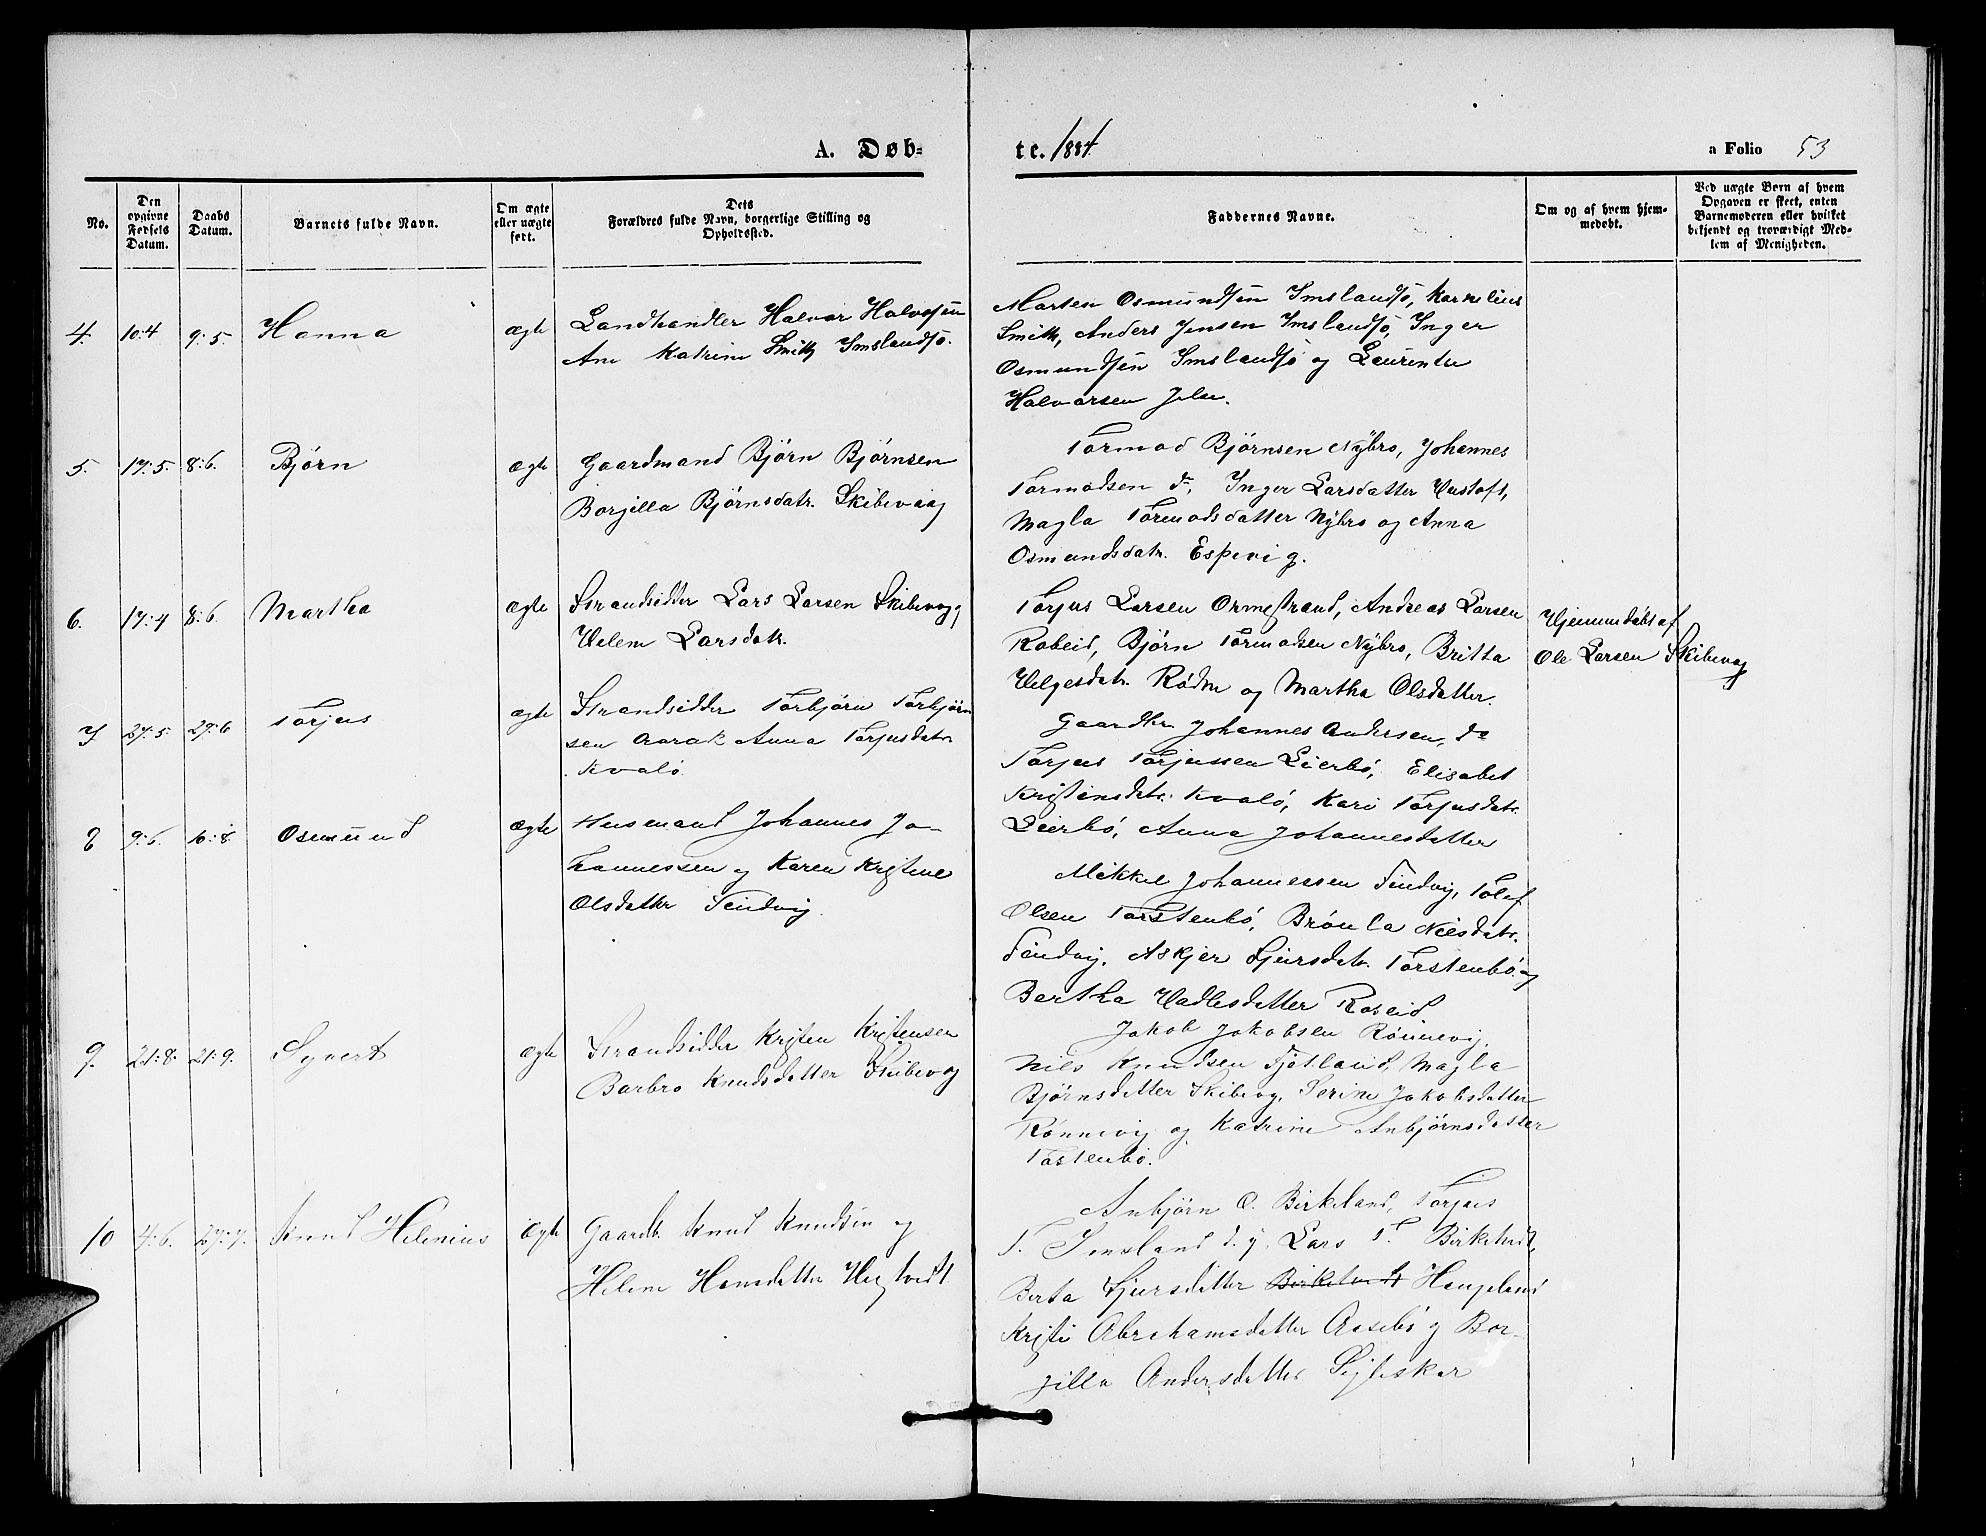 A. Døb-
te. 1884.
a Folio 53
No.
Den opgivne Fødsels Datum.
Daabs Datum.
Barnets fulde Navn.
Om ægte eller uægte født.
Dets Forældres fulde Navn, borgerlige Stilling og Opholdssted.
Faddernes Navne.
Om og af hvem hjemmedøbt.
Ved uægte Børn af hvem Opgaven er skeet, enten Barnemoderen eller hvilket bekjendt og troværdigt Medlem af Menigheden.
4. 10:4 9:5 Hanna ægte
Landhandler Halvor Halvorsen
Ane Katrine Smith Imslandsjø.
Morten Osmundsen Imslandsjø, Kornelius
Smith, Anders Jensen Imslandsjø, Inger
Osmundsen Imslandsjø og Laurentze
Halvorsen Jelse.
5. 17:5. 8:6. Bjørn ægte
Gaardmand Bjørn Bjørnsen
Borgilla Bjørnsdatr. Skibevaag
Tormod Bjørnsen Nÿbro, Johannes
Tormodsen do, Inger Larsdatter Hustoft,
Magla Tormodsdatter Nÿbro og Anna
Osmundsdatr. Espevig.
6. 17:4 8:6. Martha ægte
Strandsidder Lars Larsen Skibevog,
Helene Larsdatr.
Torjus Larsen Ormestrand, Andreas Larsen
Rabeid, Bjørn Tormodsen Nÿbro, Britta
Helgesdatr. Rødne og Martha Olsdatter.
Hjemmedøbt af
Ole Larsen Skibevog
7 27:5 29:6 Torjus ægte
Strandsidder Torbjørn Torbjørn
sen Aarak Anna Torjusdatr.
Kvalø.
Gaardbr. Johannes Andersen, do
Torjus Torjussen Leierbø, Elisabet
Kristensdatr. Kvalø, Kari Torjusdatr.
Leierbø, Anna Johannesdatter
8 9:6. 10:8. Osmund ægte
Husmand Johannes Jo-
hannessen og Karen Kristine
Olsdatter Tendvig.
Mikkel Johannessen Tendvig, Tolef
Olsen Torstenbø, Brønla Nilsdatr.
Tendvig, Askjer Sjursdatr. Torstenbø og
Bertha Hadlesdatter Roseid
9. 21:8. 21:9. Syvert ægte
Strandsidder Kristen Kristensen
Barbro Knudsdatter Skibevog
Jakob Jakobsen Rønnevig,
Nils Knudsen Fjotland, Magla
Bjørnsdatter Skibevog, Serine Jakobsdatter
Rønnevig og Katrine Anbjørnsdatter
Tostenbø.
10 4:6. 27:7. Knud Helenius ægte
Gaardb. Knud Knudsen og
Helene Hansdatter Hegtvedt
Anbjørn O. Birkeland, Torjus
T. Imsland d. y. Lars T. Birketvedt,
Berta Sjursdatter Birketvedt Haugeland
Kristi Abrahamsdatter Aasebø og Bor-
gilla Andersdatter Sigleskar